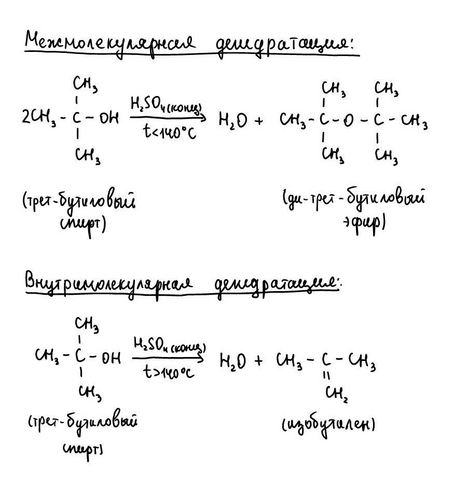 Межмолекулярная дегидратация:
CH₃ CH₃ CH₃
2CH₃ - C - OH H₂SO₄(конц) t<140°C H₂O + CH₃ - C - O - C - CH₃
CH₃ CH₃ CH₃
(трет-бутиловый спирт) (ди-трет-бутиловый эфир)
Внутримолекулярная дегидратация:
CH₃
CH₃ - C - OH H₂SO₄(конц) t>140°C H₂O + CH₃ - C - CH₃
CH₃ CH₂
(трет-бутиловый спирт) (изобутилен)